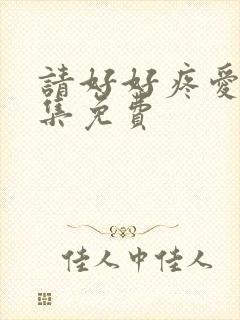 請好好疼愛
集免費
佳人中佳人